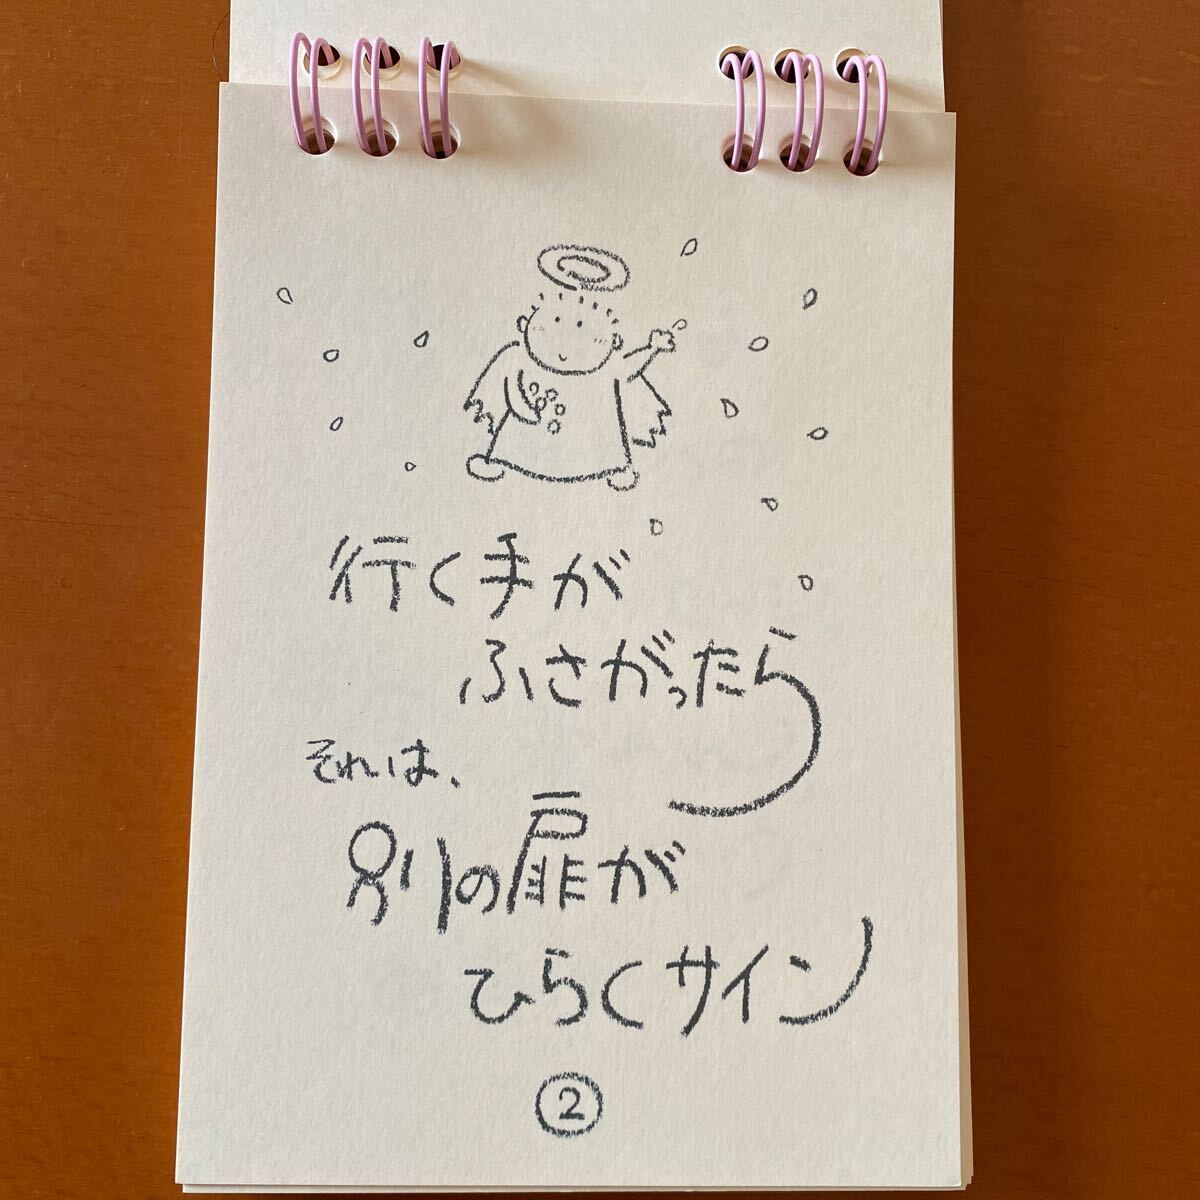 行く手が
ふさがったら
それは、
別の扉が
ひらくサイン
②